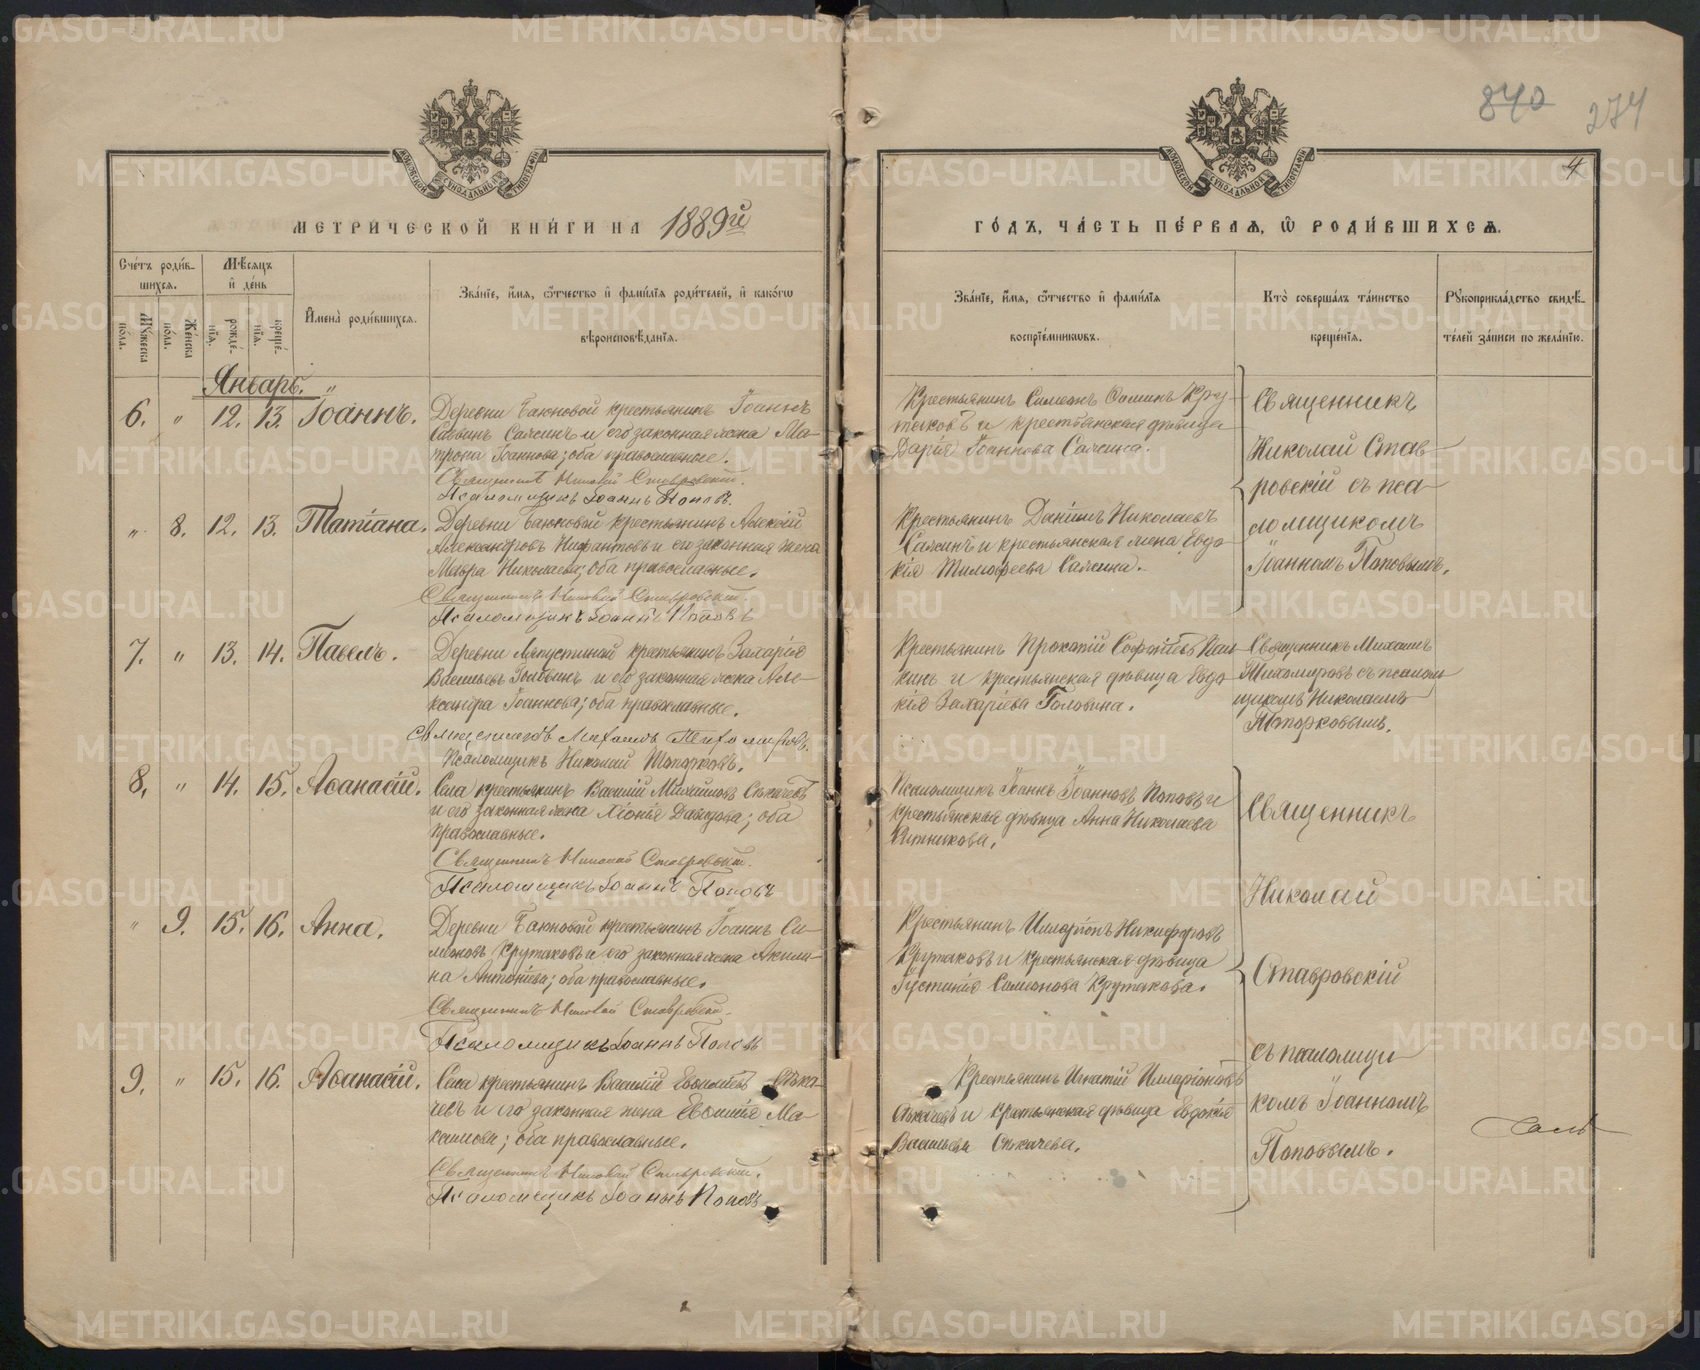 840 274
4
МЕТРИ́ЧЕСКОЙ КНИ́ГИ НА 1889й
ГО́ДЪ, ЧА́СТЬ ПЕ́РВАѦ, Ѽ РОДИ́ВШИХСѦ.
Сче́тъ роди́в-
шихсѧ.
Мꙋ́жеска
по́ла.
Же́нска
по́ла.
Мѣ́сѧцъ
и҆ де́нь
рожде́-
нїѧ.
креще́-
нїѧ.
И҆мена̀ роди́вшихсѧ.
Зва́нїе, и҆́мѧ, ѻ҆́тчество и҆ фами́лїѧ роди́телей, и҆ како́гѡ
вѣроисповѣ́данїѧ.
Зва́нїе, и҆́мѧ, ѻ҆́тчество и҆ фами́лїѧ
воспрїе́мникѡвъ.
Кто̀ соверша́лъ та́инство
креще́нїѧ.
Рꙋкоприкла́дство свидѣ́-
телей за́писи по жела́нїю.
Январь.
6. " 12. 13. Іоаннъ.
Деревни Баюновой крестьянинъ Іоаннъ
Саввинъ Салсинъ и его законная жена Ма-
трона Іоаннова; оба православные.
Священникъ Николай Ставровскій.
Псаломщикъ Іоаннъ Поповъ.
Крестьянинъ Симеонъ Ѳоминъ Кру-
таковъ и крестьянская дѣвица
Дарія Іоаннова Салсина.
Священникъ
Николай Став-
ровскій съ пса-
ломщикомъ
Іоанномъ Поповымъ.
" 8. 12. 13. Татіана.
Деревни Баюновой крестьянинъ Алексій
Александровъ Нифантовъ и его законная жена
Мавра Николаева; оба православные.
Священникъ Николай Ставровскій.
Псаломщикъ Іоаннъ Поповъ
Крестьянинъ Даніилъ Николаевъ
Салсинъ и крестьянская жена Евдо-
кія Тимофеева Салсина.
7. " 13. 14. Павелъ.
Деревни крестьянинъ Захарія
Васильевъ Головинъ и его законная жена Але-
ксандра Іоаннова; оба православные.
Священникъ Михаилъ Тихомировъ.
Псаломщикъ Николай Топорковъ.
Крестьянинъ Прокопій
и крестьянская дѣвица Евдо-
кія Захаріева Головина.
Священникъ Михаилъ
Тихомировъ съ псалом-
щикомъ Николаемъ
Топорковымъ.
8. " 14. 15. Аѳанасій.
Села крестьянинъ Василій Михайловъ Сѣкачевъ
и его законная жена Хіонія Давидова; оба
православные.
Священникъ Николай Ставровскій.
Псаломщикъ Іоаннъ Поповъ
Псаломщикъ Іоаннъ Іоанновъ Поповъ и
крестьянская дѣвица Анна Николаева
Священникъ
Николай
Ставровскій
съ псаломщи-
комъ Іоанномъ
Поповымъ.
" 9. 15. 16. Анна.
Деревни Баюновой крестьянинъ Іоаннъ Си-
меоновъ Крутаковъ и его законная жена Акили-
на Антоніева; оба православные.
Священникъ Николай Ставровскій.
Псаломщикъ Іоаннъ Поповъ
Крестьянинъ Илларіонъ Никифоровъ
Крутаковъ и крестьянская дѣвица
Іустинія Симеонова Крутакова.
9. " 15. 16. Аѳанасій.
Села крестьянинъ Василій Евѳиміевъ Сѣка-
чевъ и его законная жена Евѳимія Ма-
ксимова; оба православные.
Священникъ Николай Ставровскій.
Псаломщикъ Іоаннъ Поповъ
Крестьянинъ Игнатій Илларіоновъ
Сѣкачевъ и крестьянская дѣвица Евдокія
Васильева Сѣкачева.